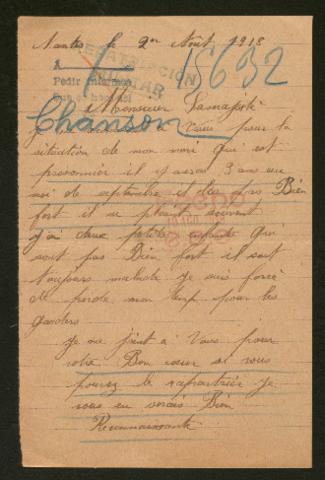 Nantes le 2 Aout 1918
REPATRIACIÓN
MILITAR
A
Pedir informes
15632
Chanson
Monsieur Sa majesté
Je à Vous pour la
situation de mon mari qui est
prisonnier il y aura 3 ans au
moi de septembre il es pas Bien
fort il se plaint souvent
j'ai deux petits enfants qui
sont pas Bien fort il sont
toujours malade je suis forcé
de perdre mon temp pour les
garders
je me joint à Vous pour
votre Bon cœur si vous
pouvez le rapartrier je
vous en serais Bien
Reconnaissante